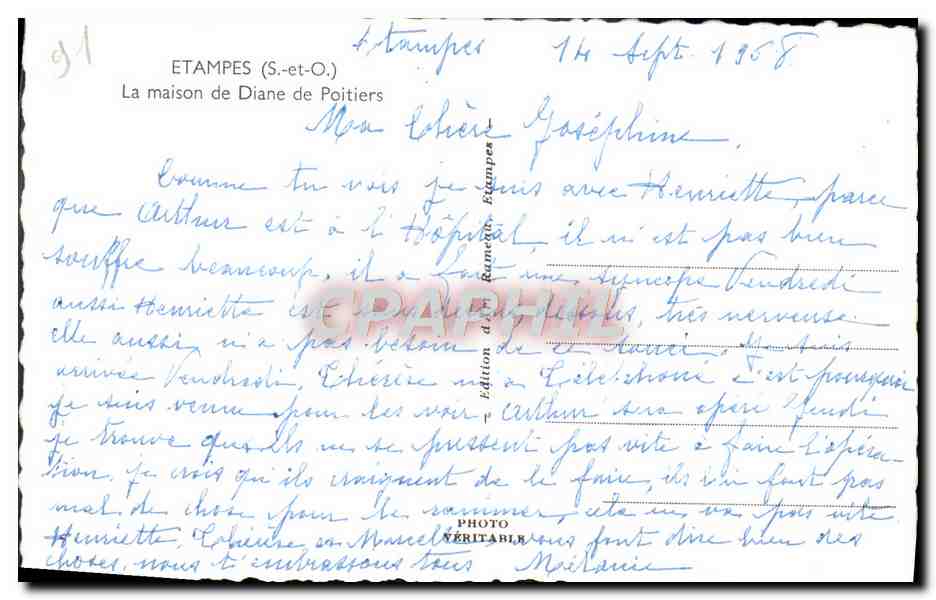 91
Etampes 14 Sept. 1958
ETAMPES (S.-et-O.)
La maison de Diane de Poitiers
Ma Chère Joséphine,
Comme tu vois je suis avec Henriette, parce
que Arthur est à l'Hôpital, il n'est pas bien
souffre beaucoup, il a fait une syncope Vendredi
aussi Henriette est sens dessus dessous, très nerveuse
elle aussi n'a pas besoin de ce souci. Je suis
arrivée Vendredi, Thérèse m'a téléphoné c'est pourquoi
je suis venue pour les voir, Arthur sera opéré Jeudi
je trouve qu'ils ne se pressent pas vite à faire l'opéra-
tion, je crois qu'ils craignent de le faire, ils lui font pas
mal de chose pour le ranimer, cela ne va pas vite
Henriette, Thérèse et Marcelle, vous font dire bien des
choses, nous t'embrassons tous Mélanie
Edition d'Art Rameau, Etampes
PHOTO
VÉRITABLE
CPAPHIL